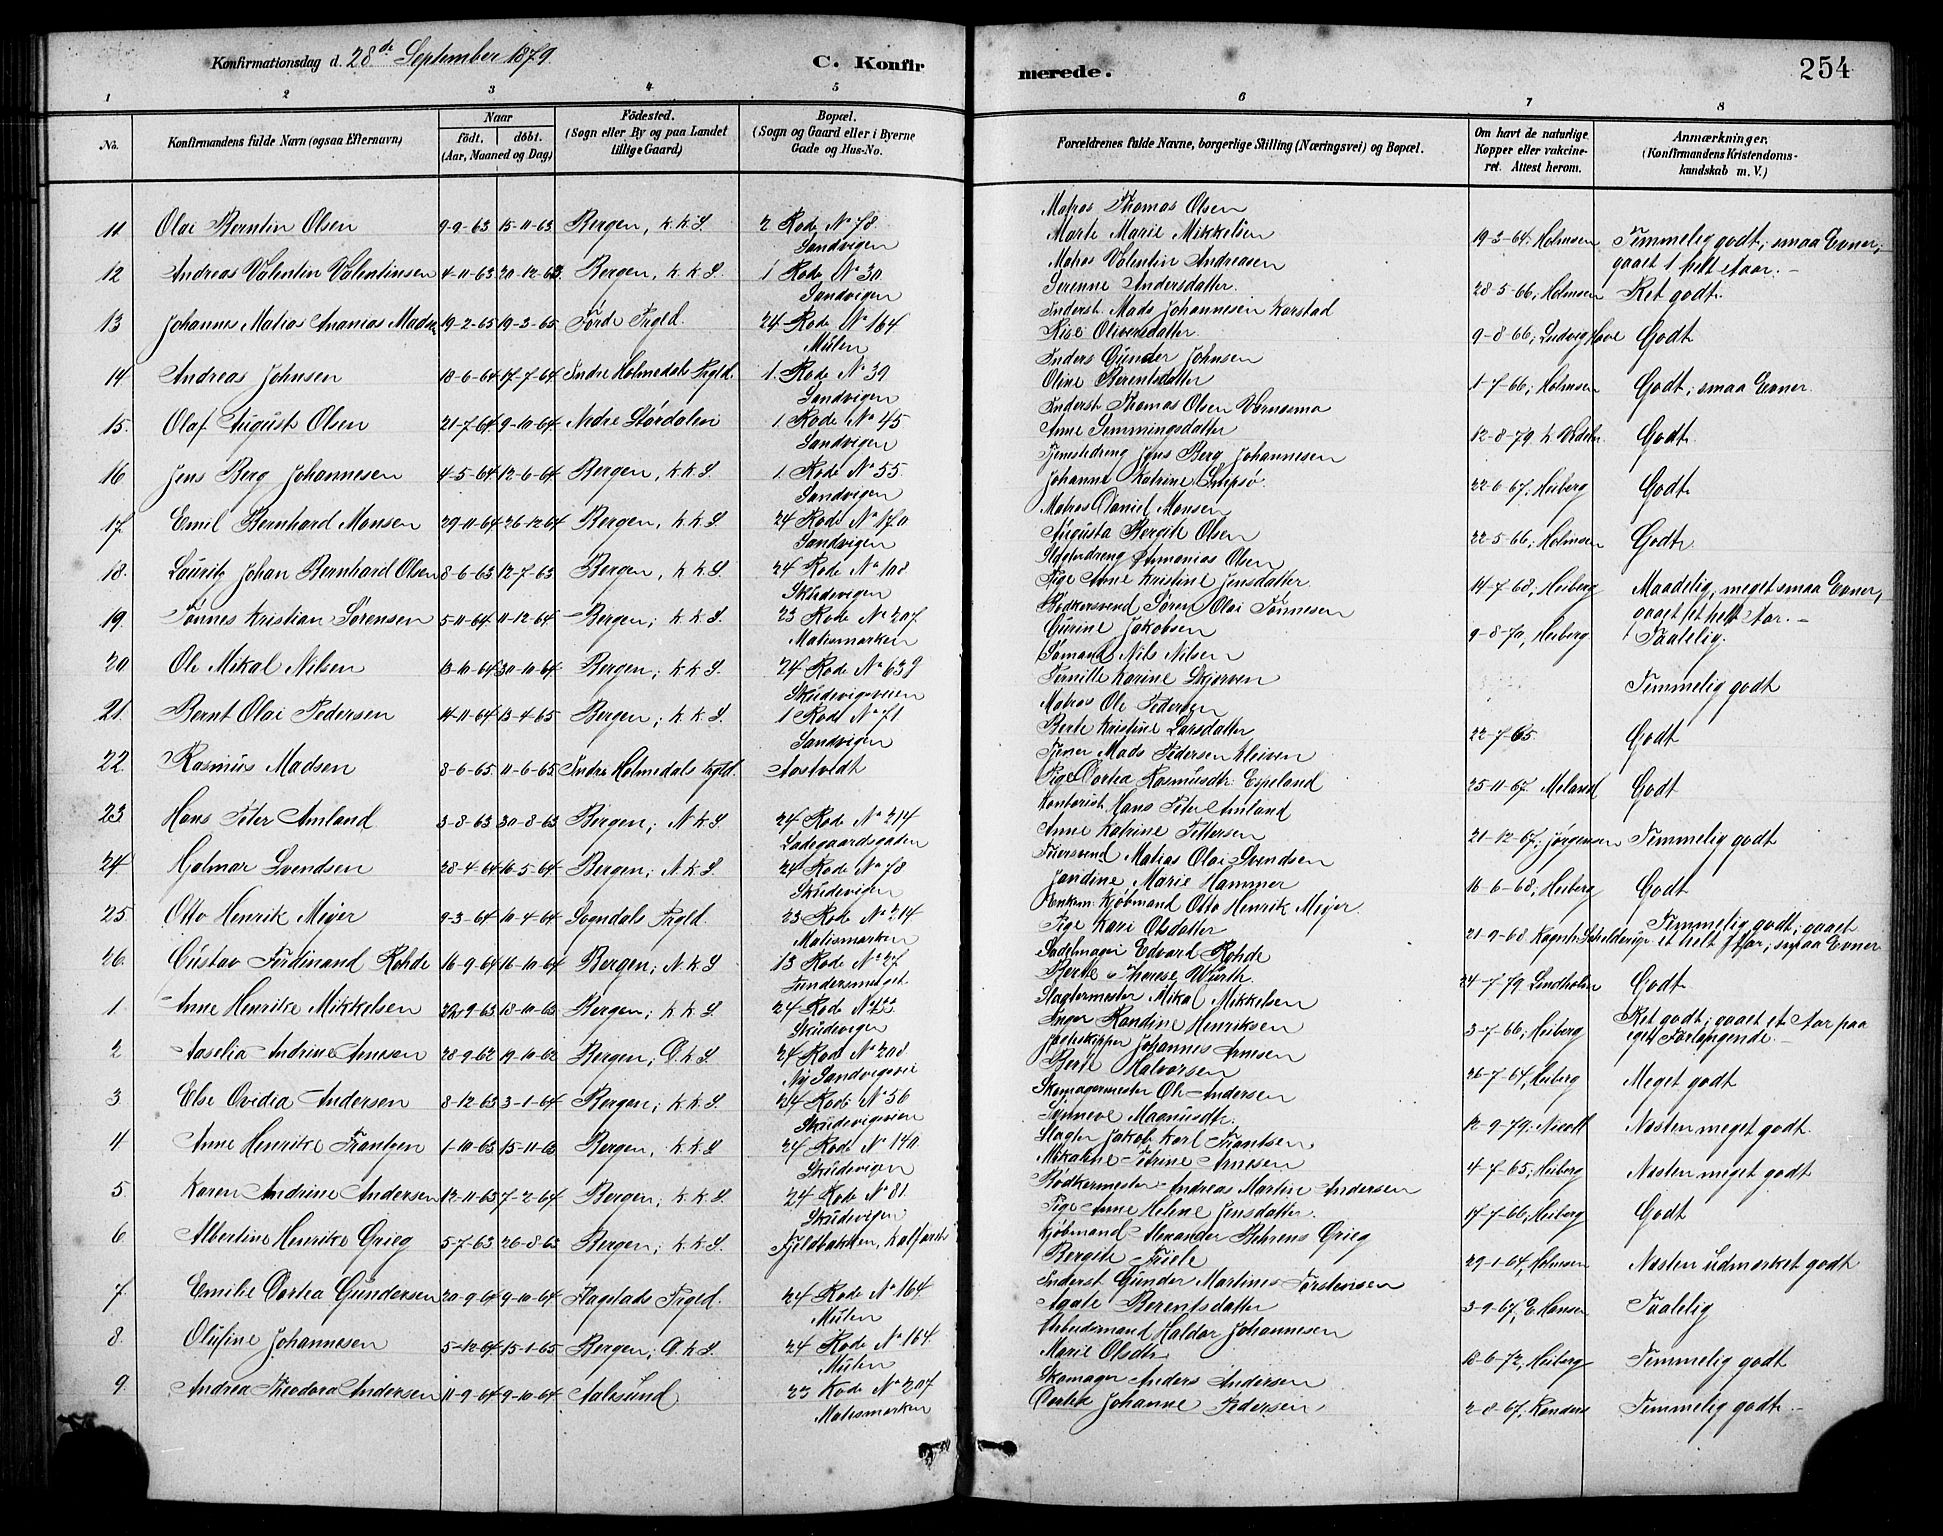 Konfirmationsdag d. 28de September 1879. C. Konfirmerede. 254
1 2 3 4 5 6 7 8
No. Konfirmandens fulde Navn (ogsaa Efternavn) Naar födt, döbt. (Aar, Maaned og Dag) Födested. (Sogn eller By og paa Landet tillige Gaard) Bopæl. (Sogn og Gaard eller i Byerne Gade og Hus-No. Forældrenes fulde Navne, borgerlige Stilling (Næringsvei) og Bopæl. Om havt de naturlige Kopper eller vakcineret. Attest herom. Anmærkninger. (Konfirmandens Kristendomskundskab m. V.)
Matros Thomas Olsen
11 Olai Berntin Olsen 9-9-63 15-11-63 Bergen, k.k.S. 2 Rode No 78 Marte Marie Mikkelsen 19-3-64, Holmsen Temmelig godt, smaa Evner,
Sandvigen Matros Valentin Andreasen gaaet 1 helt Aar.-
12 Andreas Valentin Valentinsen 4-11-63 20-12-63 Bergen, k.k.S. 1 Rode No 30 Serenne Andersdatter. 28-5-66, Holmsen Ret godt.
Sandvigen Inderst. Mads Johannesen Karstad
13 Johannes Matias Ananias Madsen 19-2-65 19-3-65 Förde Prgld. 24 Rode No 164 Oliversdatter 9-8-66, Ludvig Godt
Mülen Inders Gunder Johnsen
14. Andreas Johnsen 18-6-64 17-7-64 Indre Holmedals Prgld. 1. Rode No 39 Oline Berentsdatter 1-7-66, Holmsen Godt, smaa Evner.
Sandvigen Inderst Thomas Olsen
15. Olaf August Olsen 21-7-64 9-10-64 Nedre Stördalen 1. Rode No 45 Anne 12-8-79 Godt
Sandvigen Jens Berg Johannesen
16 Jens Berg Johannesen 4-5-64 12-6-64 Bergen, k.k.S. 1. Rode No 55. Johanne Katrine 22-6-67, Heiberg Godt
Sandvigen Matros Daniel Monsen
17. Emil Bernhard Monsen 29-11-64 26-12-64 Bergen, k.k.S. 24 Rode No 170 Augusta Bergite Olsen 22-5-66, Holmsen Godt
Sandvigen Ananias Olsen
18. Lauritz Johan Bernhard Olsen 8-6-63 12-7-63 Bergen, k.k.S. 24 Rode No 108 Pige Anne Kristine Jensdatter 14-7-68, Heiberg Maadelig, meget smaa Evner,
Skudevigen Bödkersvend Sören Olai Tönnesen gaaet et helt Aar.-
19. Tönnes Kristian Sörensen 5-11-64 11-12-64 Bergen; k.k.S. 23 Rode No 207 Gurine Jakobsen 9-8-70, Heiberg Taalelig.
Matismarken Sömand Nils Nilsen
20 Ole Mikal Nilsen 13-10-64 30-10-64 Bergen; k.k.S. 24 Rode No 639 Pernille Karine Skjerven Temmelig godt
Skudevigsveien Matros Ole Pedersen
21. Bernt Olai Pedersen 14-11-64 13-4-65 Bergen; k.k.S. 1 Rode No 71 Berte Kristine Larsdatter 22-7-65 Godt
Sandvigen Tjener Mads Pedersen Kleiven
22. Rasmus Madsen 8-6-65 11-6-65 Indre Holmedals Prgld. Aastvedt Pige Dortea Rasmusdtr. Espeland 25-11-67, Meland Godt
Kontorist Hans Peter Amland
23 Hans Peter Amland 3-8-63 30-8-63 Bergen; N.k.S. 24 Rode No 214 Anne Katrine Pettersen 21-12-67, Jörgensen Temmelig godt
Ladegaardsgaden Matias Olai Svendsen
24 Hjalmar Svendsen 28-4-64 16-5-64 Bergen; N.k.S. 24 Rode No 78 Jandine Marie Hammer 16-6-68, Heiberg Godt
Skudevigen Kjöbmand Otto Henrik Meyer
25. Otto Henrik Meyer 9-3-64 10-4-64 Sogndals Prgld. 23 Rode No 214 Pige Kari Olsdatter 21-9-68 Temmelig godt, gaaet
Matismarken Sadelmager Edvard Rohde et helt Aar; smaa Evner
26. Gustav Ferdinand Rohde 16-9-64 16-10-64 Bergen; N.k.S 13 Rode No 27 Berte Therese Würth 24-7-79 Lindholm Godt
Slagtermester Mikal Mikkelsen
1. Anne Henrike Mikkelsen 22-9-63 18-10-63 Bergen; k.k.S 24 Rode No Inger Randine Henriksen 3-7-66, Heiberg Ret godt; gaaet et Aar paa
Skudevigen Johannes Arnesen eget Forlangende.-
2 Andrine Arnesen 28-9-62 19-10-62 Bergen; D.k.S. 24 Rode No 208 Berte Halvorsen 26-7-64, Heiberg Meget godt
Ny Sandvigsvei Skomagermester Ole Andersen
3. Else Ovidia Andersen 8-12-63 3-1-64 Bergen; k.k.S. 24 Rode No 56 Synneve Magnusdtr. 12-9-79, Nicoll Næsten meget godt.
Skudevigsveien Slagter Jakob Karl Frantsen
4 Anne Henrike Frantzen 1-10-63 15-11-63 Bergen, k.k.S 24 Rode No 140 Mikaline Petrine Arnesen 4-7-65, Heiberg Næsten meget godt
Skudevigen Bödkermester Andreas Martin Andersen
5. Karen Andrine Andersen 12-11-63 7-2-64 Bergen; k.k.S. 24 Rode No 81. Pige Anne Helene Jensdatter. 17-7-66, Heiberg Godt
Skudevigen Kjöbmand Alexander Behrens Grieg
6 Albertine Henrike Grieg 5-7-63 26-8-63 Bergen; k.k.S. Fjeldbakken, Kalfaret Bergite Friele 29-1-64, Holmsen Næsten udmærket godt
Inderst Gunder Martines Torstensen
7. Emilie Dortea Gundersen 20-9-64 9-10-64 Flagstads Prgld. 24 Rode No 164 Agate Berentsdatter 3-9-67, E Hansen Taalelig
Mülen Arbeidsmand Haldor Johannesen
8. Olufine Johannesen 5-12-64 15-1-65 Bergen; D.k.S. 24 Rode No 164. Marie Olsdtr. 18-6-72, Heiberg Temmelig godt
Mülen Skomager Anders Andersen
9. Andrea Theodora Andersen 11-9-64 9-10-64 Aalesund 23 Rode No 207 Dortea Johanne Pedersen 2-8-67, Temmelig godt.-
Matismarken